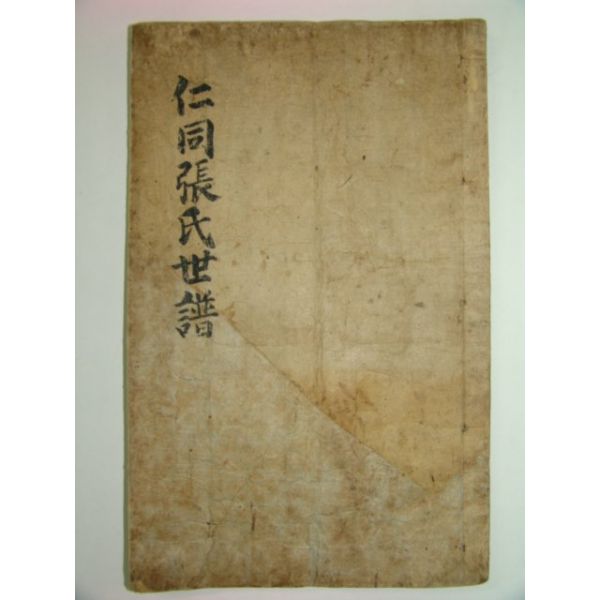 仁同張氏世譜